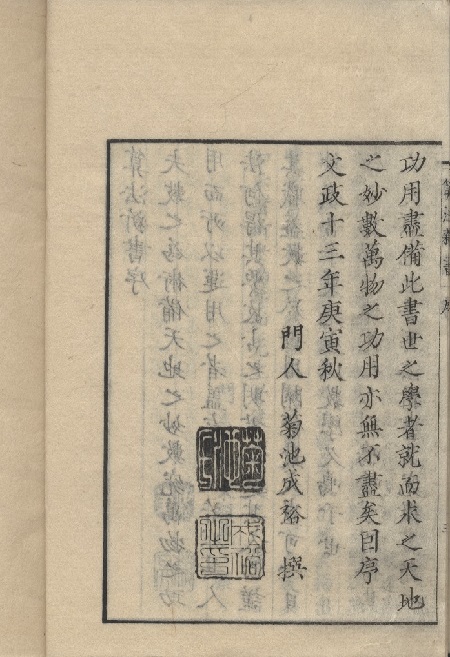 算法新書 序
功用盡備此書世之學者就而求之天地
之妙數萬物之功用亦無不盡矣囙序
文政十三年庚寅秋
門人 菊池成裕撰